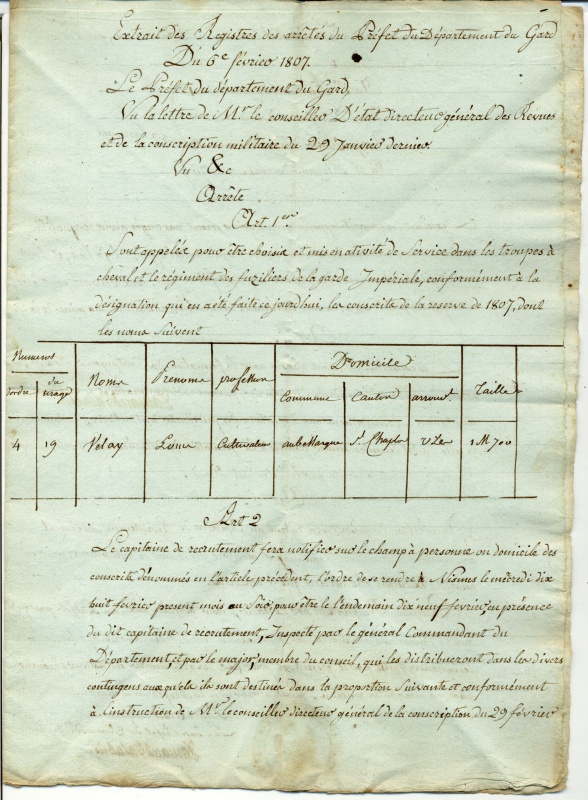 Extrait des Registres des arrêtés du Préfet du Département du Gard
Du 6e février 1807.
Le Préfet du département du Gard,
Vu la lettre de Mr. le conseiller D'état directeur général des Revues
et de la conscription militaire du 29 Janvier dernier.
Vu &c
Arrête
Art. 1er
Sont appelés pour être choisis et mis en ativité de Service dans les troupes à
cheval et le régiment des fuziliers de la garde Impériale, conformément à la
désignation qui en a été faite ce jourd'hui, les conscrits de la reserve de 1807, dont
les noms Suivent
Numeros
Domicile
d'ordre du tirage Noms Prenoms profession commune canton arrondt. Taille
4 19 Velay Louis Cultivateur aubussargues St. Chapte Uzès 1 M 700
Art 2
Le capitaine de recrutement fera notifier sur le champ à personne ou domicile des
conscrits dénommés en l'article précédent, l'ordre de se rendre à Nismes le mercredi dix
huit fevrier present mois au Soir, pour être le lendemain dix neuf fevrier, en présence
du dit capitaine de recrutement, Inspecté par le général Commandant du
Département, et par le major, membre du conseil, qui les distribueront dans les divers
contingens auxquels ils sont destinés dans la proportion Suivante et conformément
à l'instruction de Mr. le conseiller directeur général de la conscription du 29 février